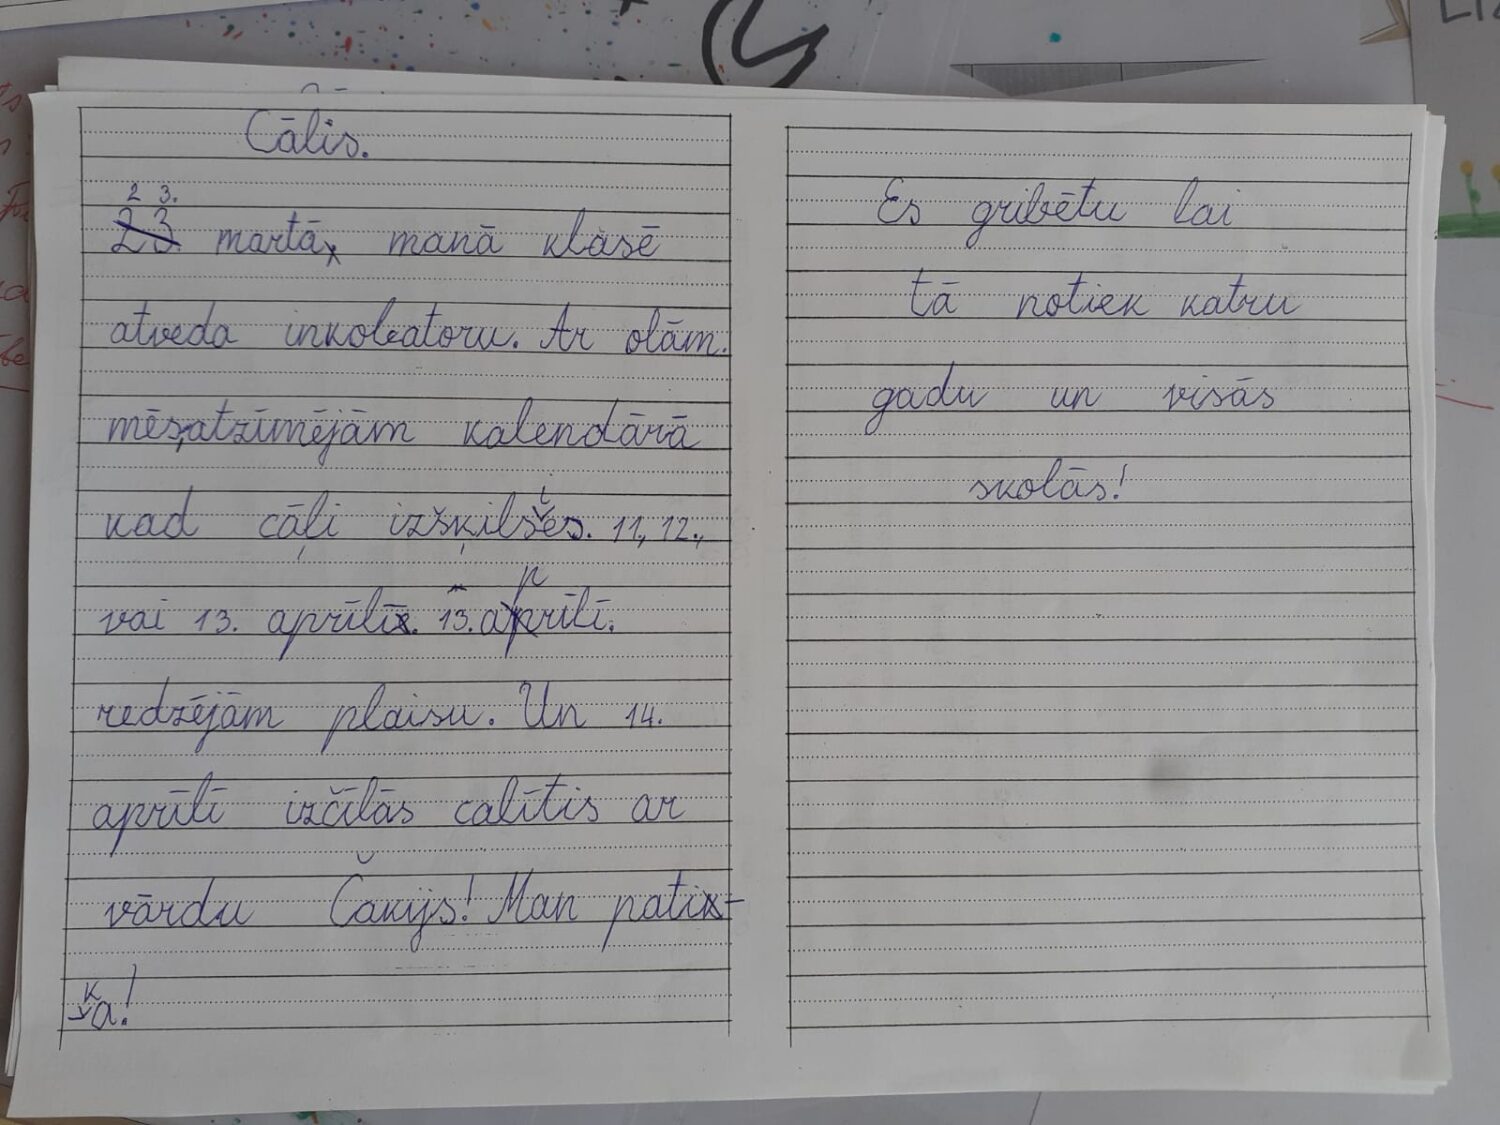 Cālis.
23. martā manā klasē
atveda inkobatoru. Ar olām.
mēs, atzīmējām kalendārā
kad cāļi izšķilsies. 11., 12.,
vai 13. aprīlī. 13. aprīlī.
redzējām plaisu. Un 14.
aprīlī izčīlās calītis ar
vārdu Čakijs! Man patik-
ka!
Es gribētu lai
tā notiek katru
gadu un visās
skolās!